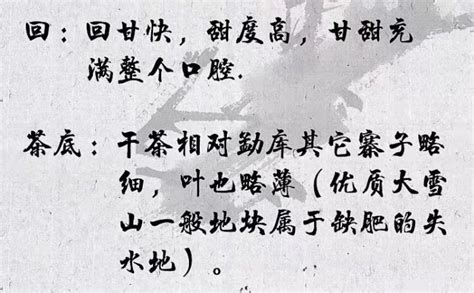 回：回甘快，甜度高，甘甜充
满整个口腔.
茶底：干茶相对勐库其它寨子略
细，叶也略薄（优质大雪
山一般地块属于缺肥的失
水地）。